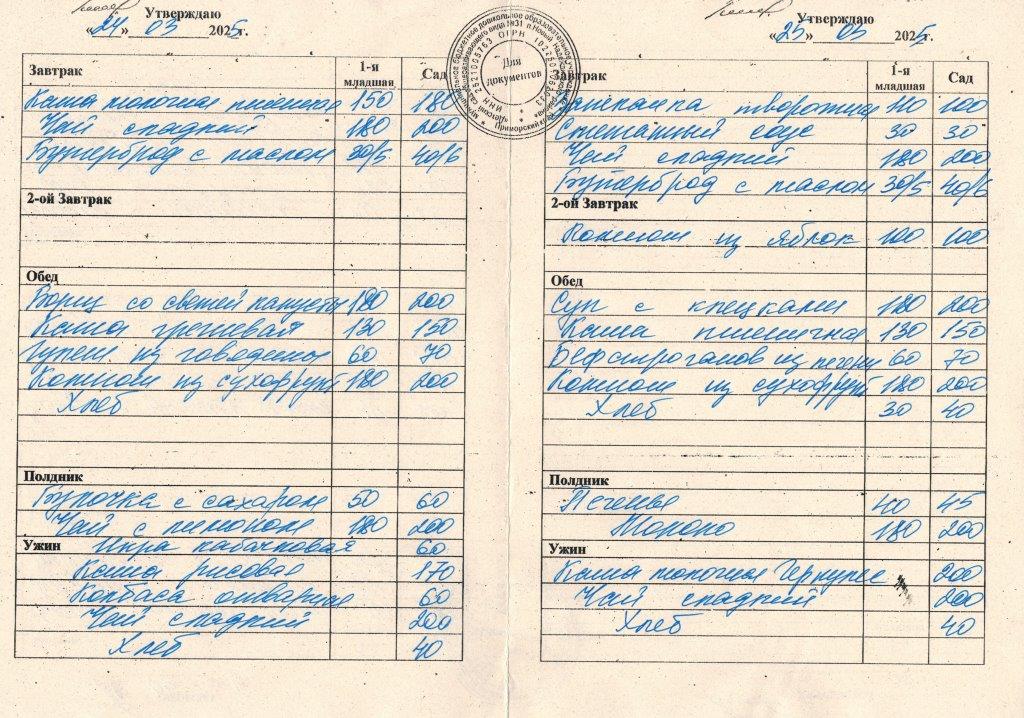 Утверждаю
«24» 03 2025г.
Завтрак 1-я младшая Сад
Каша молочная пшенная 150 180
Чай сладкий 180 200
Бутерброд с маслом 30/5 40/6
2-ой Завтрак
Обед
Борщ со свежей капусты 180 200
Каша гречневая 130 150
Гуляш из говядины 60 70
Компот из сухофрукт 180 200
Хлеб
Полдник
Булочка с сахаром 50 60
Чай с лимоном 180 200
Ужин Икра кабачковая 60
Каша рисовая 170
Колбаса отварная 60
Чай сладкий 200
Хлеб 40
Для документов
ОГРН
ИНН
Утверждаю
«25» 03 2025г.
Завтрак 1-я младшая Сад
Запеканка творожная 110 100
Сметанный соус 30 30
Чай сладкий 180 200
Бутерброд с маслом 30/5 40/6
2-ой Завтрак
Компот из яблок 100 100
Обед
Суп с клецками 180 200
Каша пшеничная 130 150
Бефстроганов из печени 60 70
Компот из сухофрукт 180 200
Хлеб 30 40
Полдник
Печенье 40 45
Молоко 180 200
Ужин
Каша молочная Геркулес 200
Чай сладкий 200
Хлеб 40